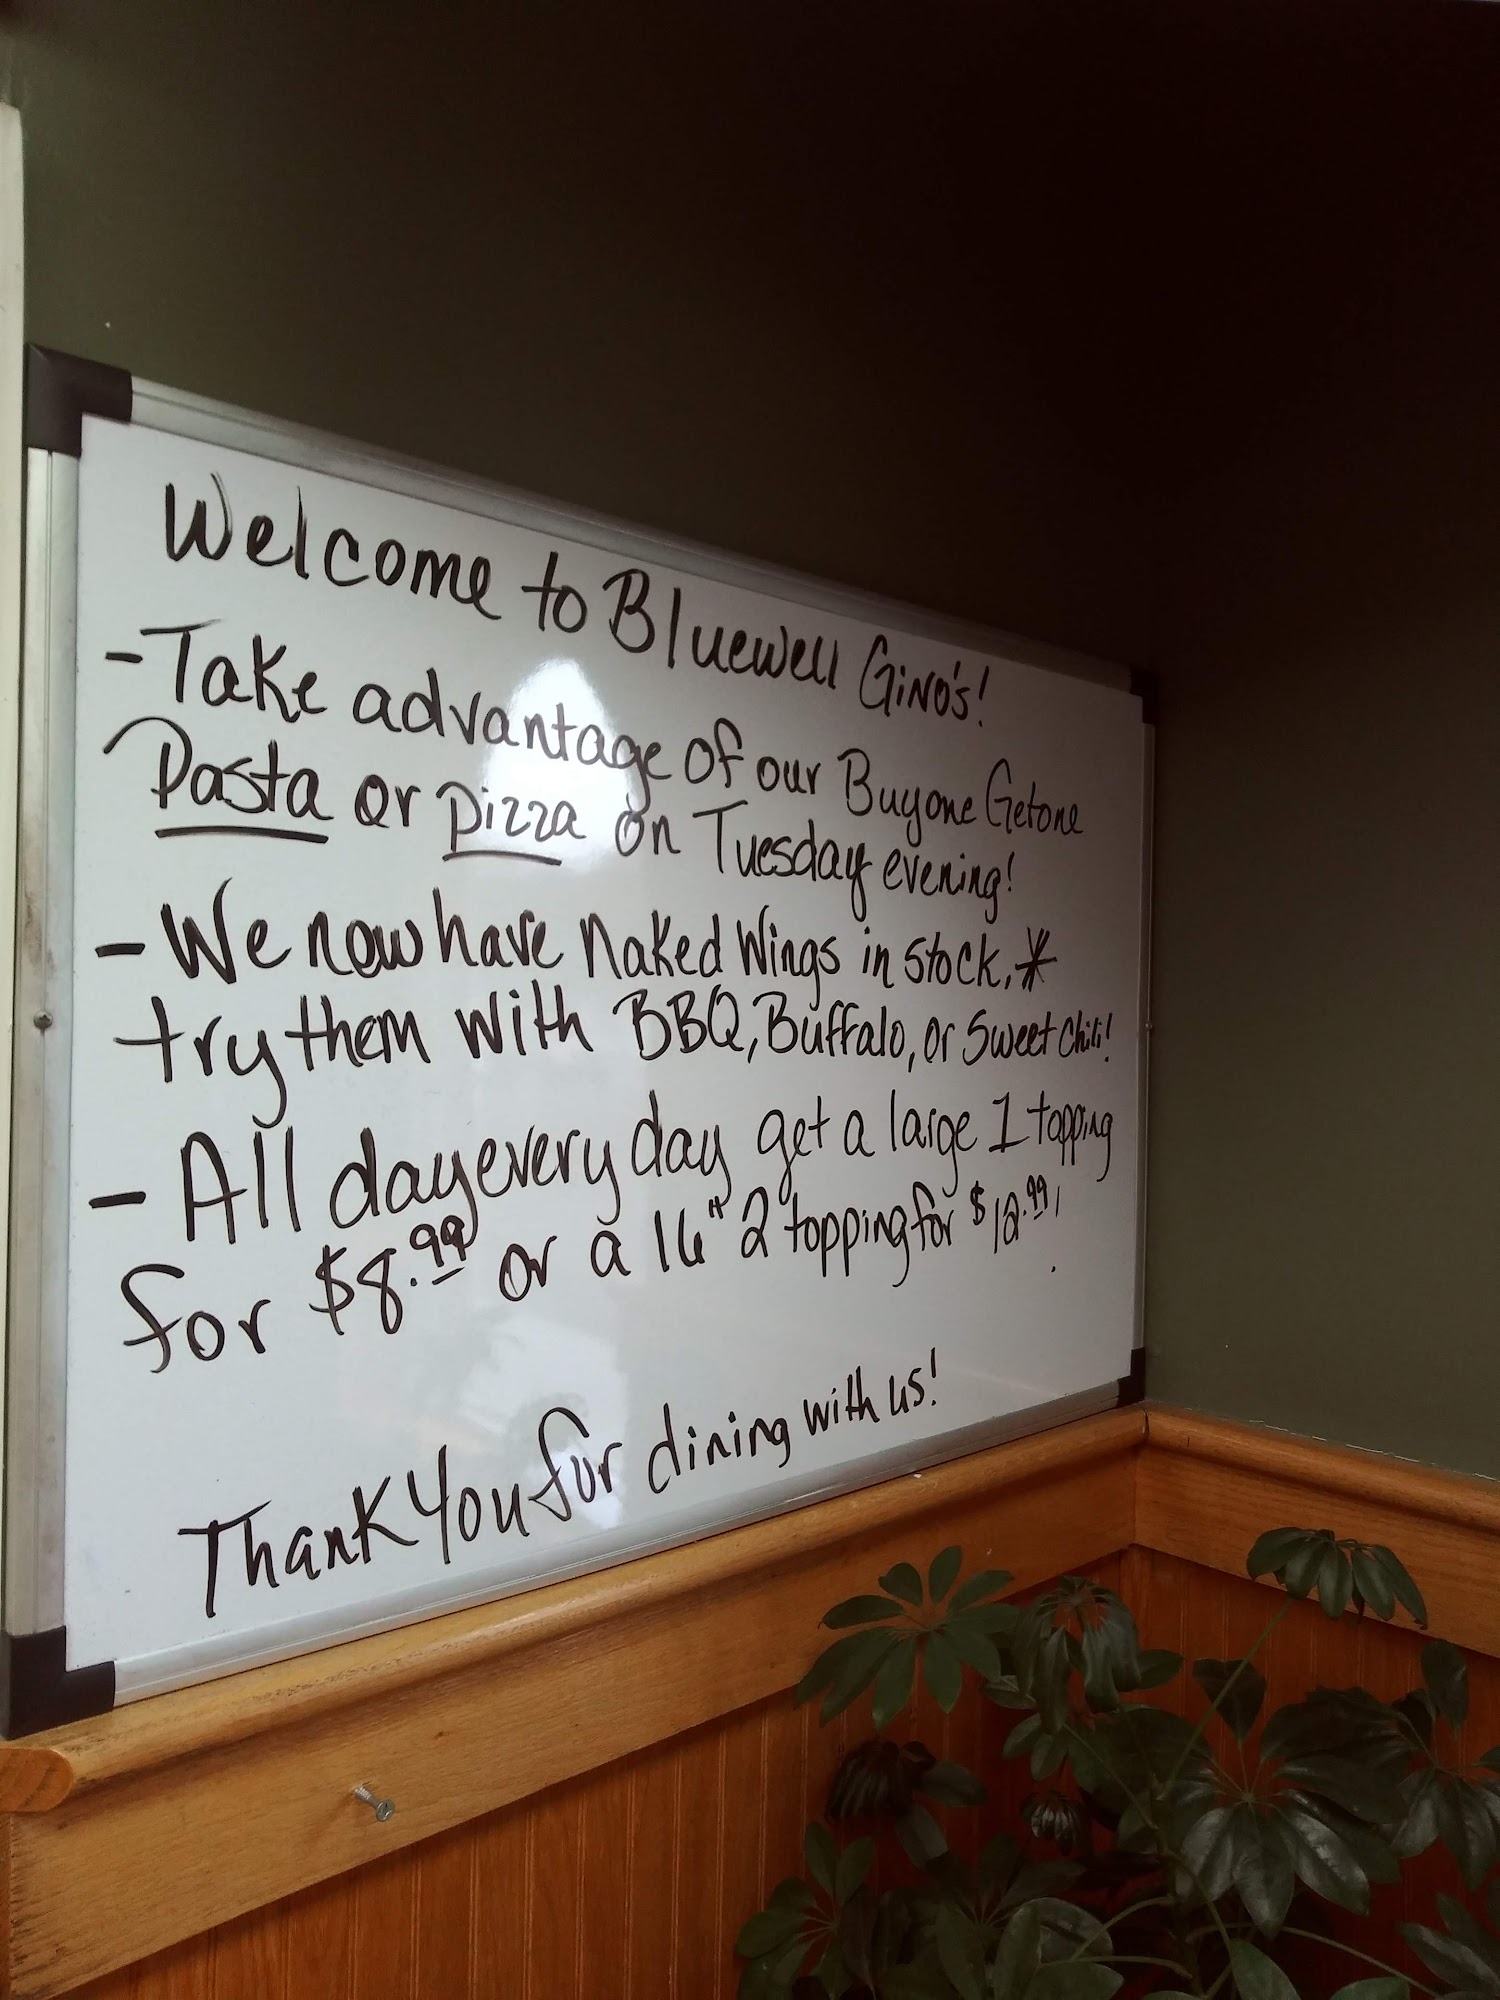 Welcome to Bluewell Gino's!
- Take advantage of our Buy one Get one
Pasta or Pizza on Tuesday evening!
- We now have Naked Wings in stock. *
try them with BBQ, Buffalo, or Sweet Chili!
- All day every day get a large 1 topping
for $8.99 or a 16" 2 topping for $12.99!
Thank You for dining with us!